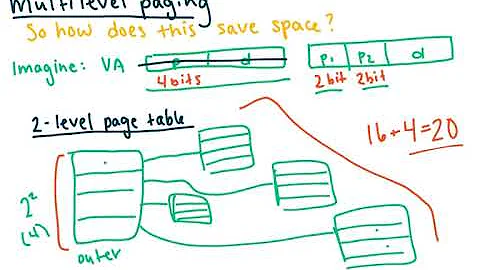 Multilevel paging
So how does this save space?
Imagine: VA
p d
p1 p2 d
4 bits
2bit 2bit
2-level page table
16+4=20
2²
(4)
outer